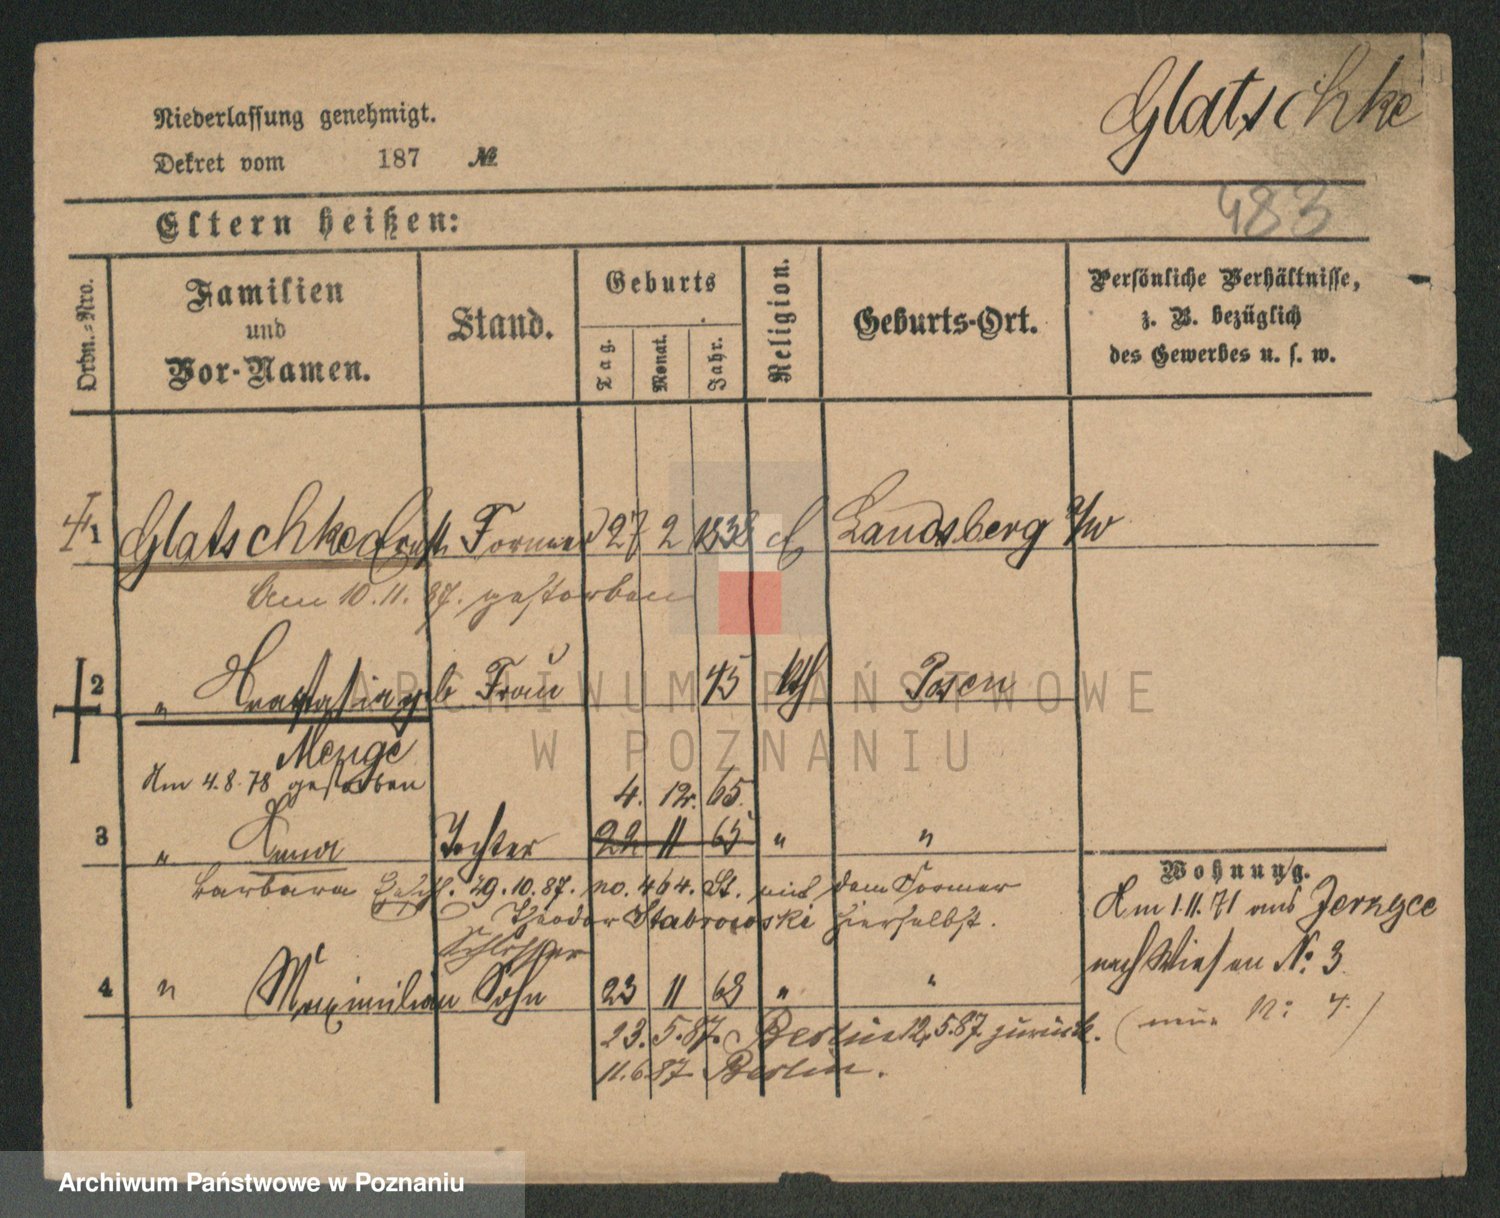 Glatschke
Niederlassung genehmigt.
Dekret vom 187 №
483
Eltern heißen:
Ordn.-Nro.
Familien
und
Vor-Namen.
Stand.
Geburts
Tag.
Monat.
Jahr.
Religion.
Geburts-Ort.
Persönliche Verhältnisse,
z. B. bezüglich
des Gewerbes u. s. w.
1 Glatschke Ernst Former 27 2 1838 Landsberg a/w
Am 10.11.87. gestorben
2 " Frau 45 kth Posen
Menge
Am 4.8.78 gestorben
4. 12. 65.
3 " Anna Tochter 22 11 65 " "
Barbara 29.10.87. no. 464. St. mit dem Former
Theodor Stabrowski hierselbst.
Schlosser
4 " Maximilian Sohn 23 11 68 " "
23.5.87. Berlin 12.5.87 zurück.
11.6.87 Berlin.
Wohnung.
Am 1.11.71 aus Jerzyce
nach Wiesen No. 3.
(neue No: 4.)
ARCHIWUM PAŃSTWOWE
W POZNANIU
Archiwum Państwowe w Poznaniu